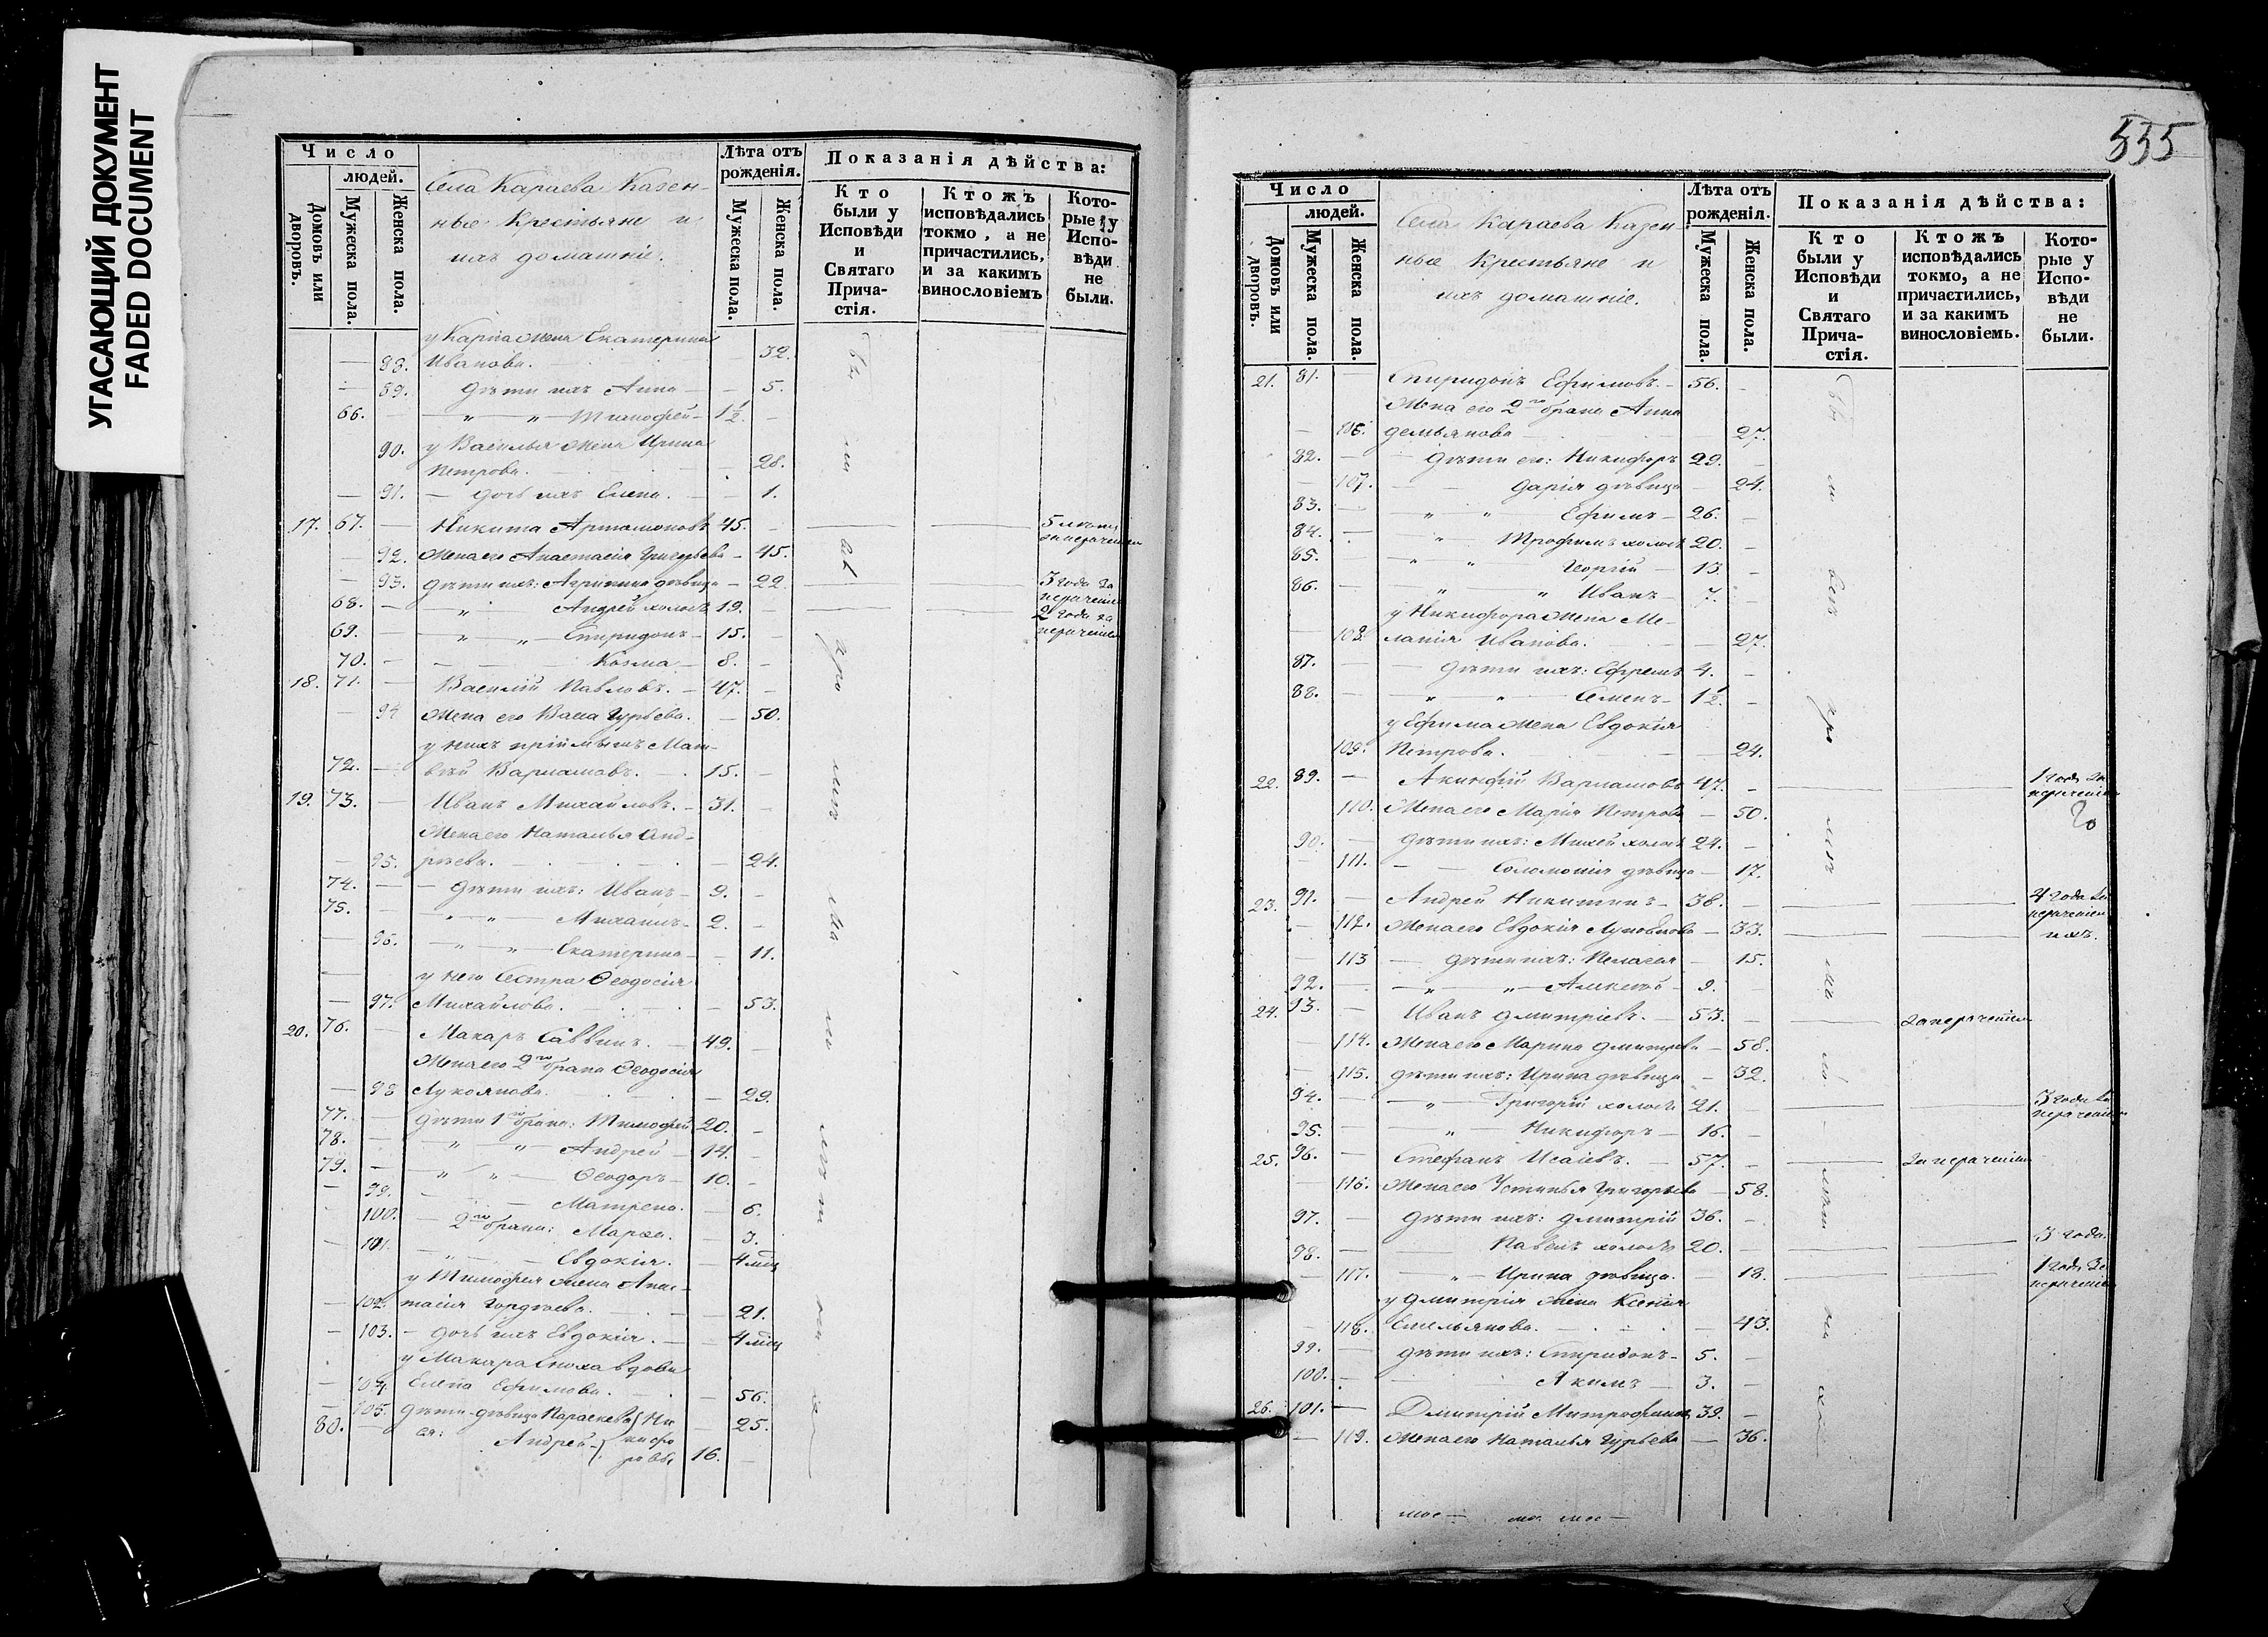 УГАСАЮЩИЙ ДОКУМЕНТ
FADED DOCUMENT
Число
людей.
Домовъ или дворовъ.
Мужеска пола.
Женска пола.
Села Караева Казен-
ные Крестьяне и
ихъ домашніе.
Лѣта отъ рожденія.
Мужеска пола.
Женска пола.
Показанія дѣйства:
Кто были у Исповѣди и Святаго Прича-стія.
Ктожъ исповѣдались токмо, а не причастились, и за какимъ винословіемъ
Кото-рые у Испо-вѣди не были.
у Карпа жена Екатерина
— 88. Иванова. — 32.
— 89. Дѣти ихъ Анна — 5.
66. — „ „ Тимофей — 1½. —
у Василья жена Ирина
90. Петрова. — 28.
— 91. — дочь ихъ Елена. — 1.
17. 67. — Никита Артамоновъ 45. — 5 лѣтъ
за нераченіем
— 92. Жена его Анастасія Григорьева — 45.
— 93. Дѣти ихъ: Агрипина дѣвица — 22. 3 года за
нераченіе
68. — „ Андрей холостъ 19. — 2 года за
нераченіе
69. — „ „ Спиридонъ — 15. —
70. — Козма — 8. —
18. 71. — Василій Павловъ. — 47. —
— 94 Жена его Васса Гурьева. — 50.
у нихъ пріймышъ Мат-
72. — вѣй Варламовъ. — 15. —
19. 73. — Иванъ Михайловъ. — 31. —
Жена его Наталья Анд-
— 95. рѣева. — 24.
74. — Дѣти ихъ: Иванъ — 9. —
75. — „ „ Михаилъ — 2. —
— 96. — „ „ Екатерина — 11.
у него Сестра Ѳеодосія
— 97. Михайлова. — 53.
20. 76. — Макаръ Саввинъ. — 49. —
Жена его 2го брака Ѳеодосія
— 98 Лукоянова. — 29.
77. — Дѣти 1го брака: Тимофей 20. —
78. — „ „ Андрей — 14. —
79. — „ „ Ѳеодоръ — 10. —
— 99. — Матрена. — 6.
100. — 2го брака: Марѳа. — 3.
— 101. — „ Евдокія. — 4 мѣц
у Тимофея жена Анас-
— 102. тасія Гордѣева. — 21.
— 103. — дочь ихъ Евдокія. — 4 мѣц
у Макара сноха вдова
— 104. Елена Ефимова. — 56.
— 105. Дѣти дѣвица Параскева Ни — 25.
80. — ея: Андрей кифо
ровы 16. —
Бы
ли
всѣ
про
чіе
на
ли
цо
535
Число
людей.
Домовъ или дворовъ.
Мужеска пола.
Женска пола.
Села Караева Казен
ные Крестьяне и
ихъ домашніе.
Лѣта отъ рожденія.
Мужеска пола.
Женска пола.
Показанія дѣйства:
Кто были у Исповѣди и Святаго Прича-стія.
Ктожъ исповѣдались токмо, а не причастились, и за какимъ винословіемъ.
Кото-рые у Испо-вѣди не были.
21. 81. — Спиридонъ Ефимовъ. — 56. —
Жена его 2го брака Анна
— 106. Демьянова — 27.
82. — Дѣти его: Никифоръ 29. —
— 107. — Дарія дѣвица — 24.
83. — „ „ Ефимъ — 26. —
84. — „ Трофимъ холостъ 20. —
85. „ „ Георгій — 13. —
86. — „ „ Иванъ — 7. —
у Никифора жена Ме-
— 108. ланія Иванова. — 27.
87. — Дѣти ихъ: Ефремъ 4. —
88. — „ „ Семенъ — 1½. —
у Ефима жена Евдокія
109. Петрова. — 24.
22. 89. — Акинфій Варламовъ 47. — 1 годъ за
нераченіе
110. Жена его Марія Петрова — 50.
90. — Дѣти ихъ: Михей холостъ 24. —
— 111. — Соломонія дѣвица — 17.
23. 91. — Андрей Никитинъ — 38. — 4 года за
нераченіем
— 112. Жена его Евдокія — 33. ихъ.
— 113 — Дѣти ихъ: Пелагея — 15.
92. — „ „ Алексѣй — 9. —
24. 93. — Иванъ Дмитріевъ. — 53. — За нераченіем
— 114. Жена его Марина Дмитріева — 58.
— 115. Дѣти ихъ: Ирина дѣвица — 32.
94. — „ Григорій холостъ 21. — 3 года за
нераченіе
95. „ Никифоръ — 16. —
25. 96. — Стефанъ Исаіевъ. — 57. — За нераченіем
— 116. Жена его Устинья Григорьева — 58.
97. — Дѣти ихъ: Дмитрій 36. —
98. — Павелъ холостъ 20. — 3 года.
— 117. „ Ирина дѣвица. — 18. 1 годъ за
нераченіе
у Дмитрія жена Ксенія
— 118. Емельянова. — 43.
99. — Дѣти ихъ: Спиридонъ — 5. —
100. — Акимъ — 3. —
26. 101. — Дмитрій Митрофановъ 39. —
— 119. Жена его Наталья Гурьева — 36.